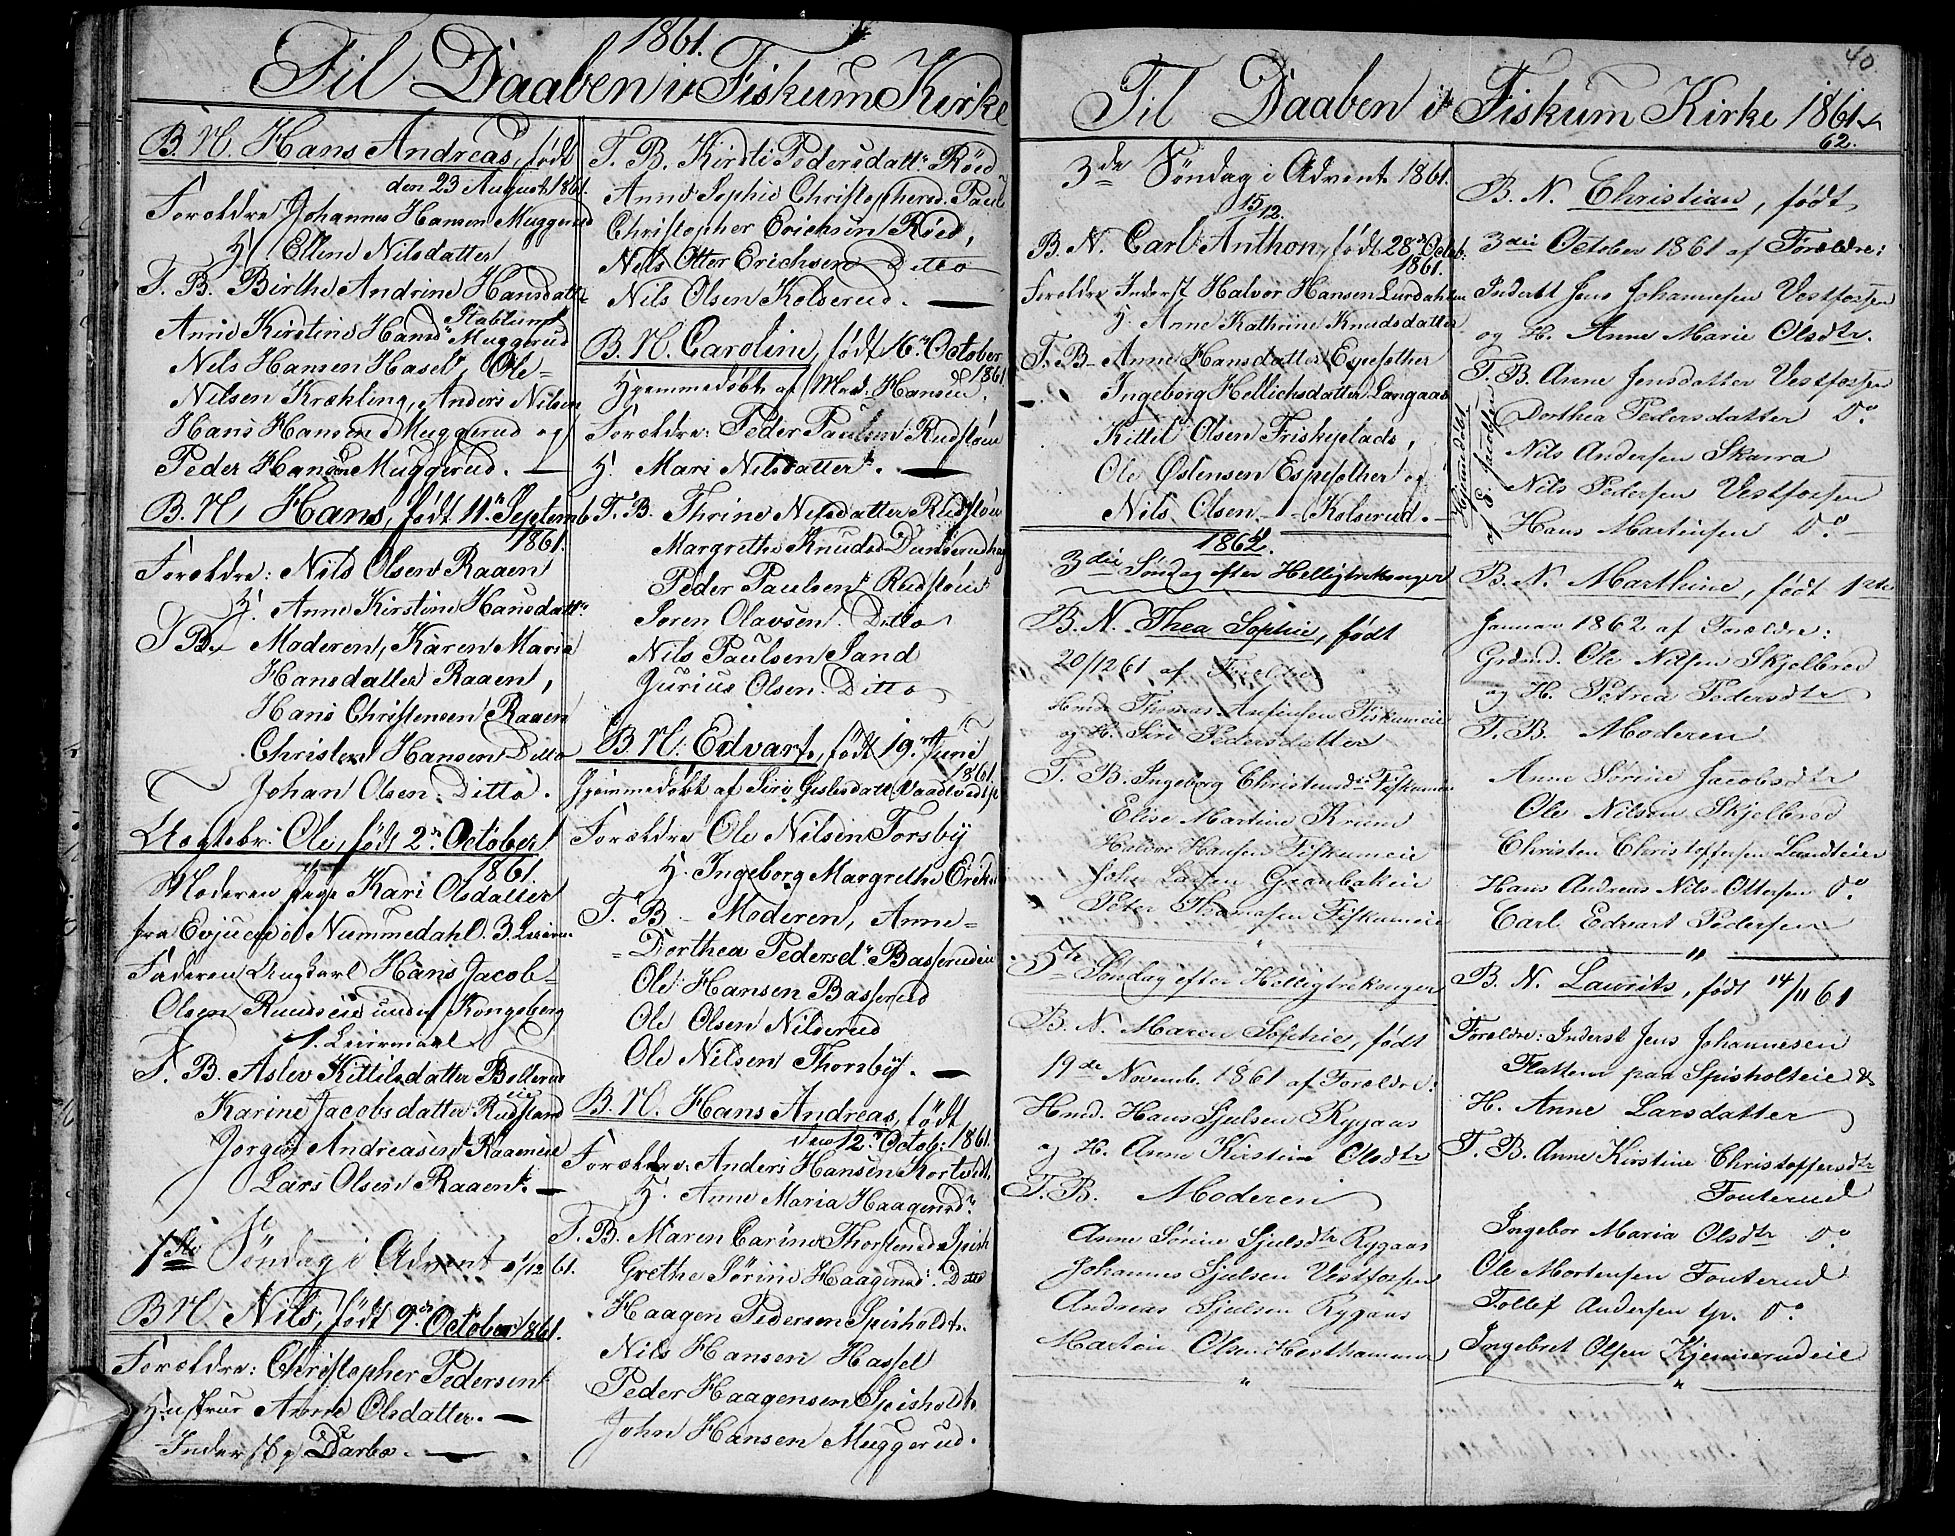 1861.
Til Daaben i Fiskum Kirke
B. N. Hans Andreas, født
den 23 August 1861.
Forældre Johannes Hansen Muggerud
H. Ellen Nilsdatter
T. B. Birthe Andrine Hansdatt
Stablum
Anne Kirstine Hansd. Muggerud
Nils Hansen Hasel, Ole
Nilsen Krækling, Anders Nilsen
Hans Hansen Muggerud og
Peder Hansen Muggerud. —
B. N. Hans, født 11. Septemb.
1861.
Forældre: Nils Olsen Raaen
H. Anne Kirstine Hansdattr
T. B. Moderen, Karen Maria
Hansdatter Raaen,
Hans Christensen Raaen
Christen Hansen Ditto
Johan Olsen Ditto.
Uægtebr. Ole, født 2. October
1861.
Moderen Pige Kari Olsdatter
fra Evjueie i Nummedahl. 3. Leierm.
Faderen Ungkarl Hans Jacob
Olsen Ruudseie under Kongsberg
1. Leiermaal
T. B. Aslev Kittilsdatter Bollerud
eie
Karine Jacobsdatter Rudsland
Jørgen Andreasen Raaeneie
Lars Olsen Raaen. —
1ste Søndag i Advent 1/12 61.
B. N. Nils, født 9. October 1861.
Forældre: Christopher Pedersen
Hustrue Anne Olsdatter. —
Inderst p. Darbo. —
T. B. Kirsti Pedersdattr Røed
Anne Sophie Christophersd. Paul
Christopher Erichsen Røed,
Nils Otter Erichsen Ditto
Nils Olsen Kolserud. —
B. N. Caroline, født 6. October
1861
Hjemmedøbt af Mad. Hansen.
Forældre: Peder Paulsen Rudstøen
H. Mari Nilsdatter. —
T. B. Thrine Nilsdatter Rudstøen
Margrethe Knudsd Dunserudhag
Peder Paulsen Rudstøen
Søren Olavsen Ditto
Nils Paulsen Sand
Jurius Olsen Ditto
B. N. Edvart, født 19. Juni
1861.
Hjemmedøbt af Siri Gislesdatt
Forældre Ole Nilsen Torsby
H. Ingeborg Margrethe Eriks
T. B. Moderen, Anne
Dorthea Pedersd. Basserudeie
Ole Hansen Basserud
Ole Olsen Nilserud
Ole Nilsen Thorsby. —
B. N. Hans Andreas, født
den 12. Octob: 1861.
Forældre: Anders Hansen Kortvedt
H. Anne Maria Haagensd.
T. B. Maren Carine Thorstensd Spish
Grethe Sørine Haagensd. Ditto
Haagen Pedersen Spisholdt.
Nils Hansen Hassel
Peder Haagensen Spisholdt.
John Hansen Muggerud.
40.
Til Daaben i Fiskum Kirke 1861
62.
3de Søndag i Advent 1861.
15/12.
B. N. Carl Anthon, født 28de Octob.
1861.
Forældre Inderst Halvor Hansen Lurdahlen
H. Anne Kathrine Knudsdatter
T. B. Anne Hansdatter Espesether
Ingeborg Hellichsdatter Langaas
Kittil Olsen Friskeplads,
Ole Østensen Espesether og
Nils Olsen Kolserud. —
1862.
3die Søndag efter Helligtrekonger
B. N. Thea Sophie, født
20/12 61 af Forældre
Hmd. Thomas Anfinsen Fiskumeie
og H. Siri Pedersdatter
T. B. Ingeborg Christensdr Fiskumeie
Elise Martine Krum
Halvor Hansen Fiskumeie
John Larsen Granbakeie
Peter Thomasen Fiskumeie
"
5te Søndag efter Helligtrekonger
B. N. Maren Sophie, født
19de Novemb. 1861 af Forældre:
Hmd. Hans Sjulsen Rygaas
og H. Anne Kirstine Olsdtr
T. B. Moderen
Anne Sørine Sjulsdtr Rygaas
Johannes Sjulsen Vestfossen
Andreas Sjulsen Rygaas
Martin Olsen Horthammer
"
B. N. Christian, født
3die October 1861 af Forældre:
Inderst Jens Johannesen Vestfossen
og H. Anne Marie Olsdtr.
T. B. Anne Jensdatter Vestfossen
Dorthea Pedersdatter Do
Nils Andersen Skarra
Nils Pedersen Vestfossen
Hans Martinsen Do
Hjemdøbt
af E. Jacobsen
B. N. Marthine, født 1ste
Januar 1862 af Forældre:
Grdmd. Ole Nilsen Skjelbred
og H. Petrea Pedersdtr
T. B. Moderen
Anne Sørine Jacobsdtr
Ole Nilsen Skjelbred
Christen Christoffersen Lundteier
Hans Andreas Nils Ottersen Do
Carl Edvart Pedersen
"
B. N. Laurits, født 14/11 61
Forældre: Inderst Jens Johannesen
Flatten paa Spisholteie &
H. Anne Larsdatter
T. B. Anne Kirstine Christoffersdtr
Fouterud
Ingebor Maria Olsdtr Do
Ole Mortensen Fouterud
Tollef Andersen tp. Do
Ingebret Olsen Kjennerudeie
"